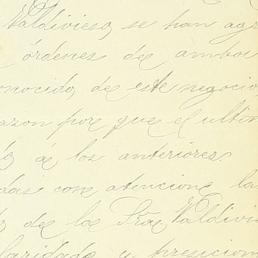 Valdivieso, se han agr
órdenes de ambos
onocido, de este negocio
razon por que el ultim
á los anteriores
das con atencion la
de los Sres Valdivi
laridad y precision